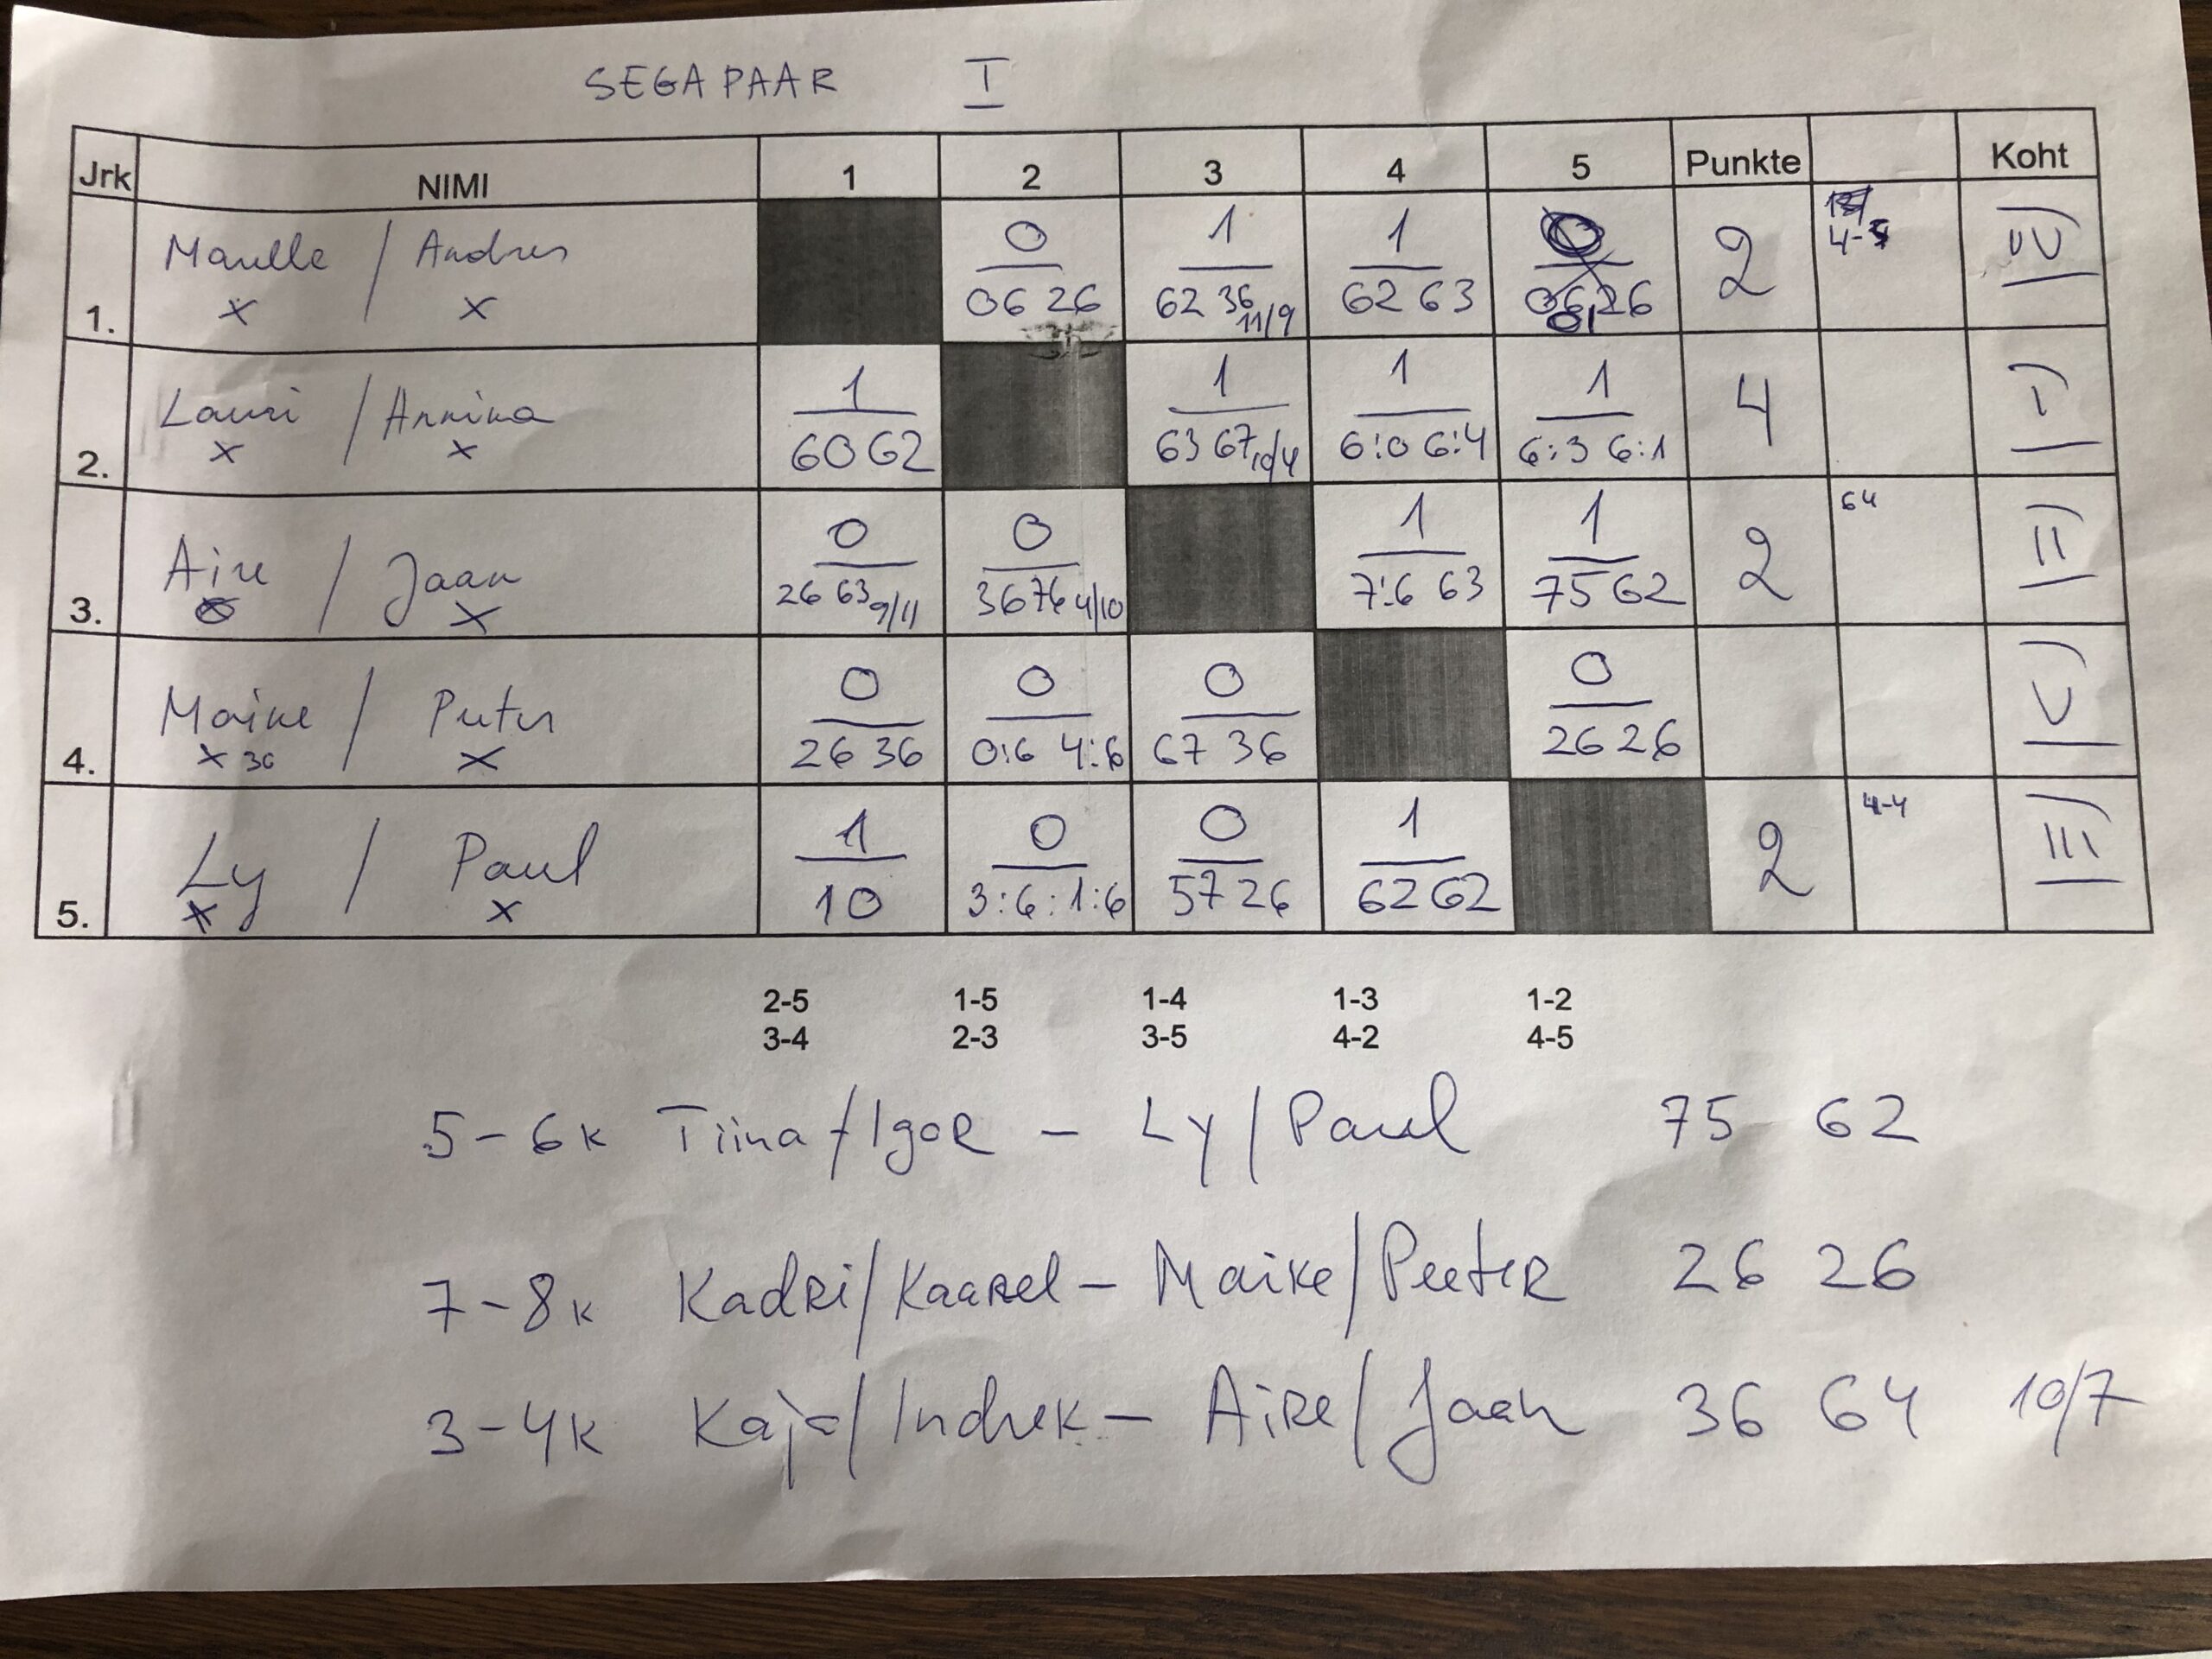 SEGAPAAR I
Jrk NIMI 1 2 3 4 5 Punkte Koht
1. Maulle / Andres 0 1 1 2 IV
x x 06 26 62 36 11/9 62 63 01 4-5
2. Lauri / Annika 1 1 1 1 4 I
x x 60 62 63 67 10/4 6:0 6:4 6:3 6:1
3. Aire / Jaan 0 0 1 1 2 64 II
x 26 63 9/11 36 76 4/10 7:6 63 75 62
4. Maike / Peeter 0 0 0 0 V
x 36 x 26 36 0:6 4:6 67 36 26 26
5. Ly / Paul 1 0 0 1 2 4-4 III
x x 10 3:6:1:6 57 26 62 62
2-5 1-5 1-4 1-3 1-2
3-4 2-3 3-5 4-2 4-5
5-6k Tiina/Igor - Ly/Paul 75 62
7-8k Kadri/Kaarel - Maike/Peeter 26 26
3-4k Kaja/Indrek - Aire/Jaan 36 64 10/7